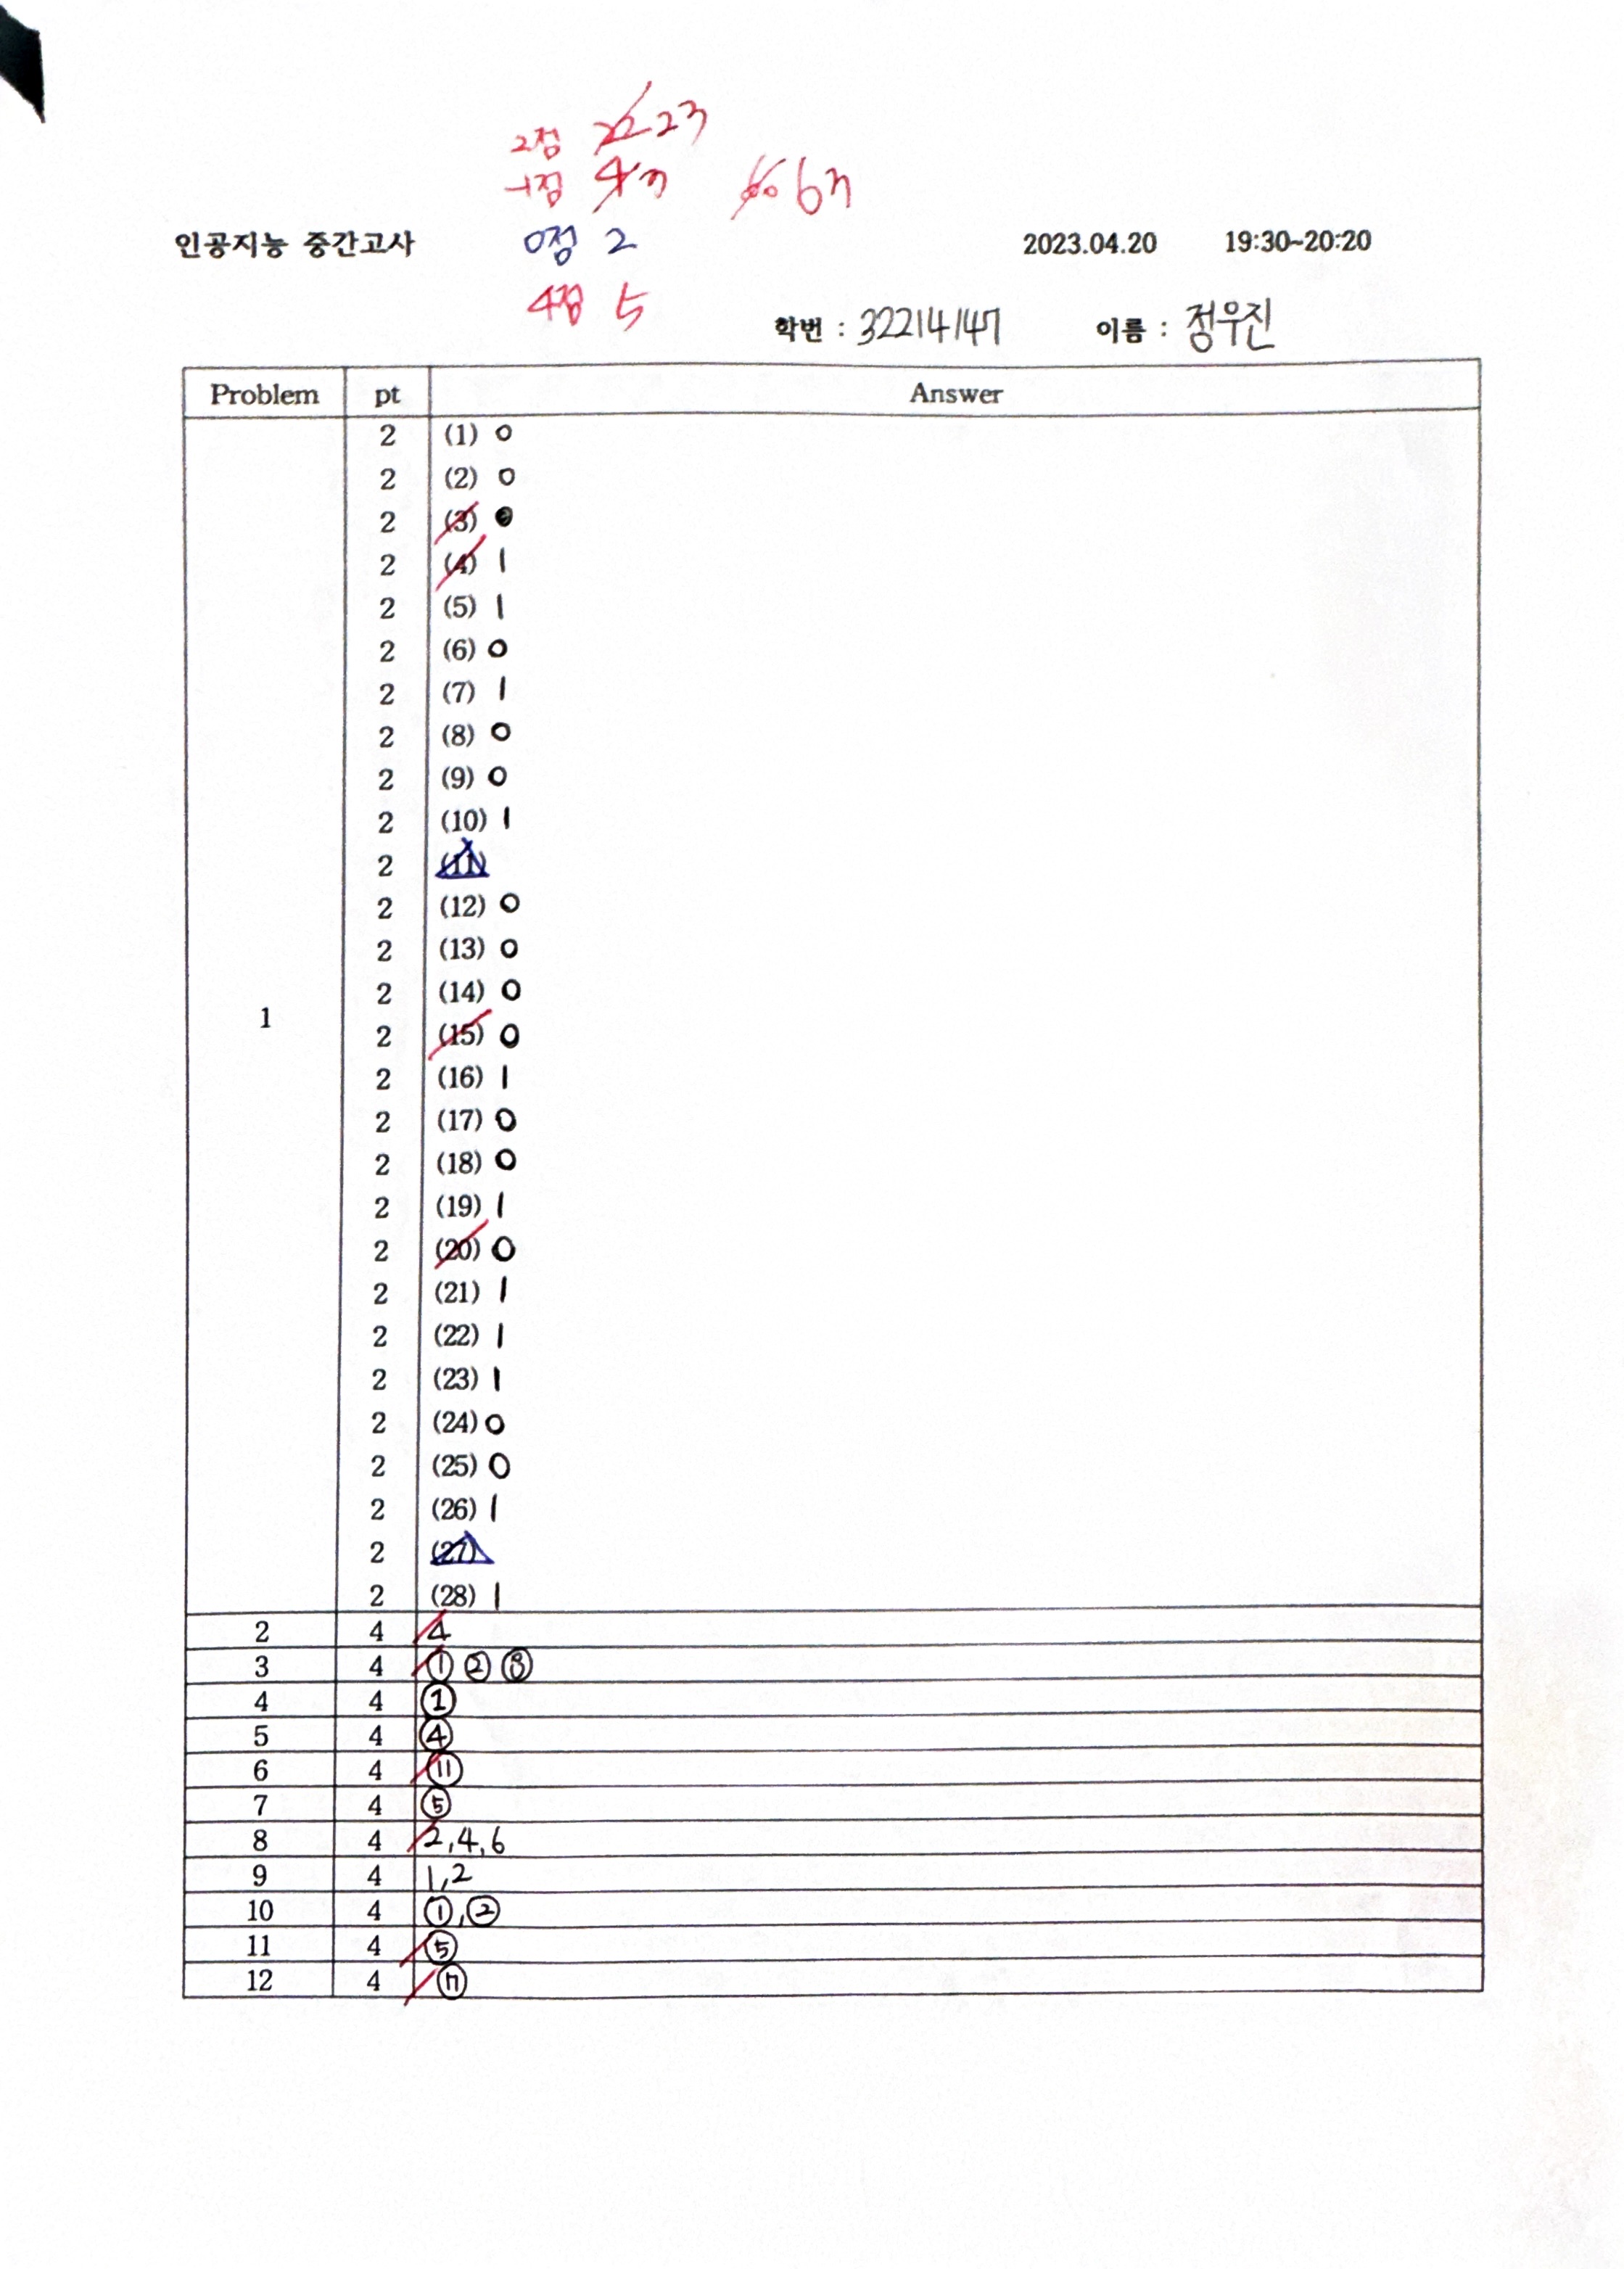 2점 22 23
-1점 4 3 66 67
인공지능 중간고사 0점 2 2023.04.20 19:30~20:20
4점 5
학번 : 32214147 이름 : 정우진
Problem pt Answer
2 (1) 0
2 (2) 0
2 (3)
2 (4) 1
2 (5) 1
2 (6) 0
2 (7) 1
2 (8) 0
2 (9) 0
2 (10) 1
2 (11)
2 (12) 0
2 (13) 0
2 (14) 0
1
2 (15) 0
2 (16) 1
2 (17) 0
2 (18) 0
2 (19) 1
2 (20) 0
2 (21) 1
2 (22) 1
2 (23) 1
2 (24) 0
2 (25) 0
2 (26) 1
2 (27)
2 (28) 1
2 4 4
3 4 ① ② ⑧
4 4 ①
5 4 ④
6 4 ⑪
7 4 ⑤
8 4 2,4,6
9 4 1,2
10 4 ①,②
11 4 ⑤
12 4 ⑦